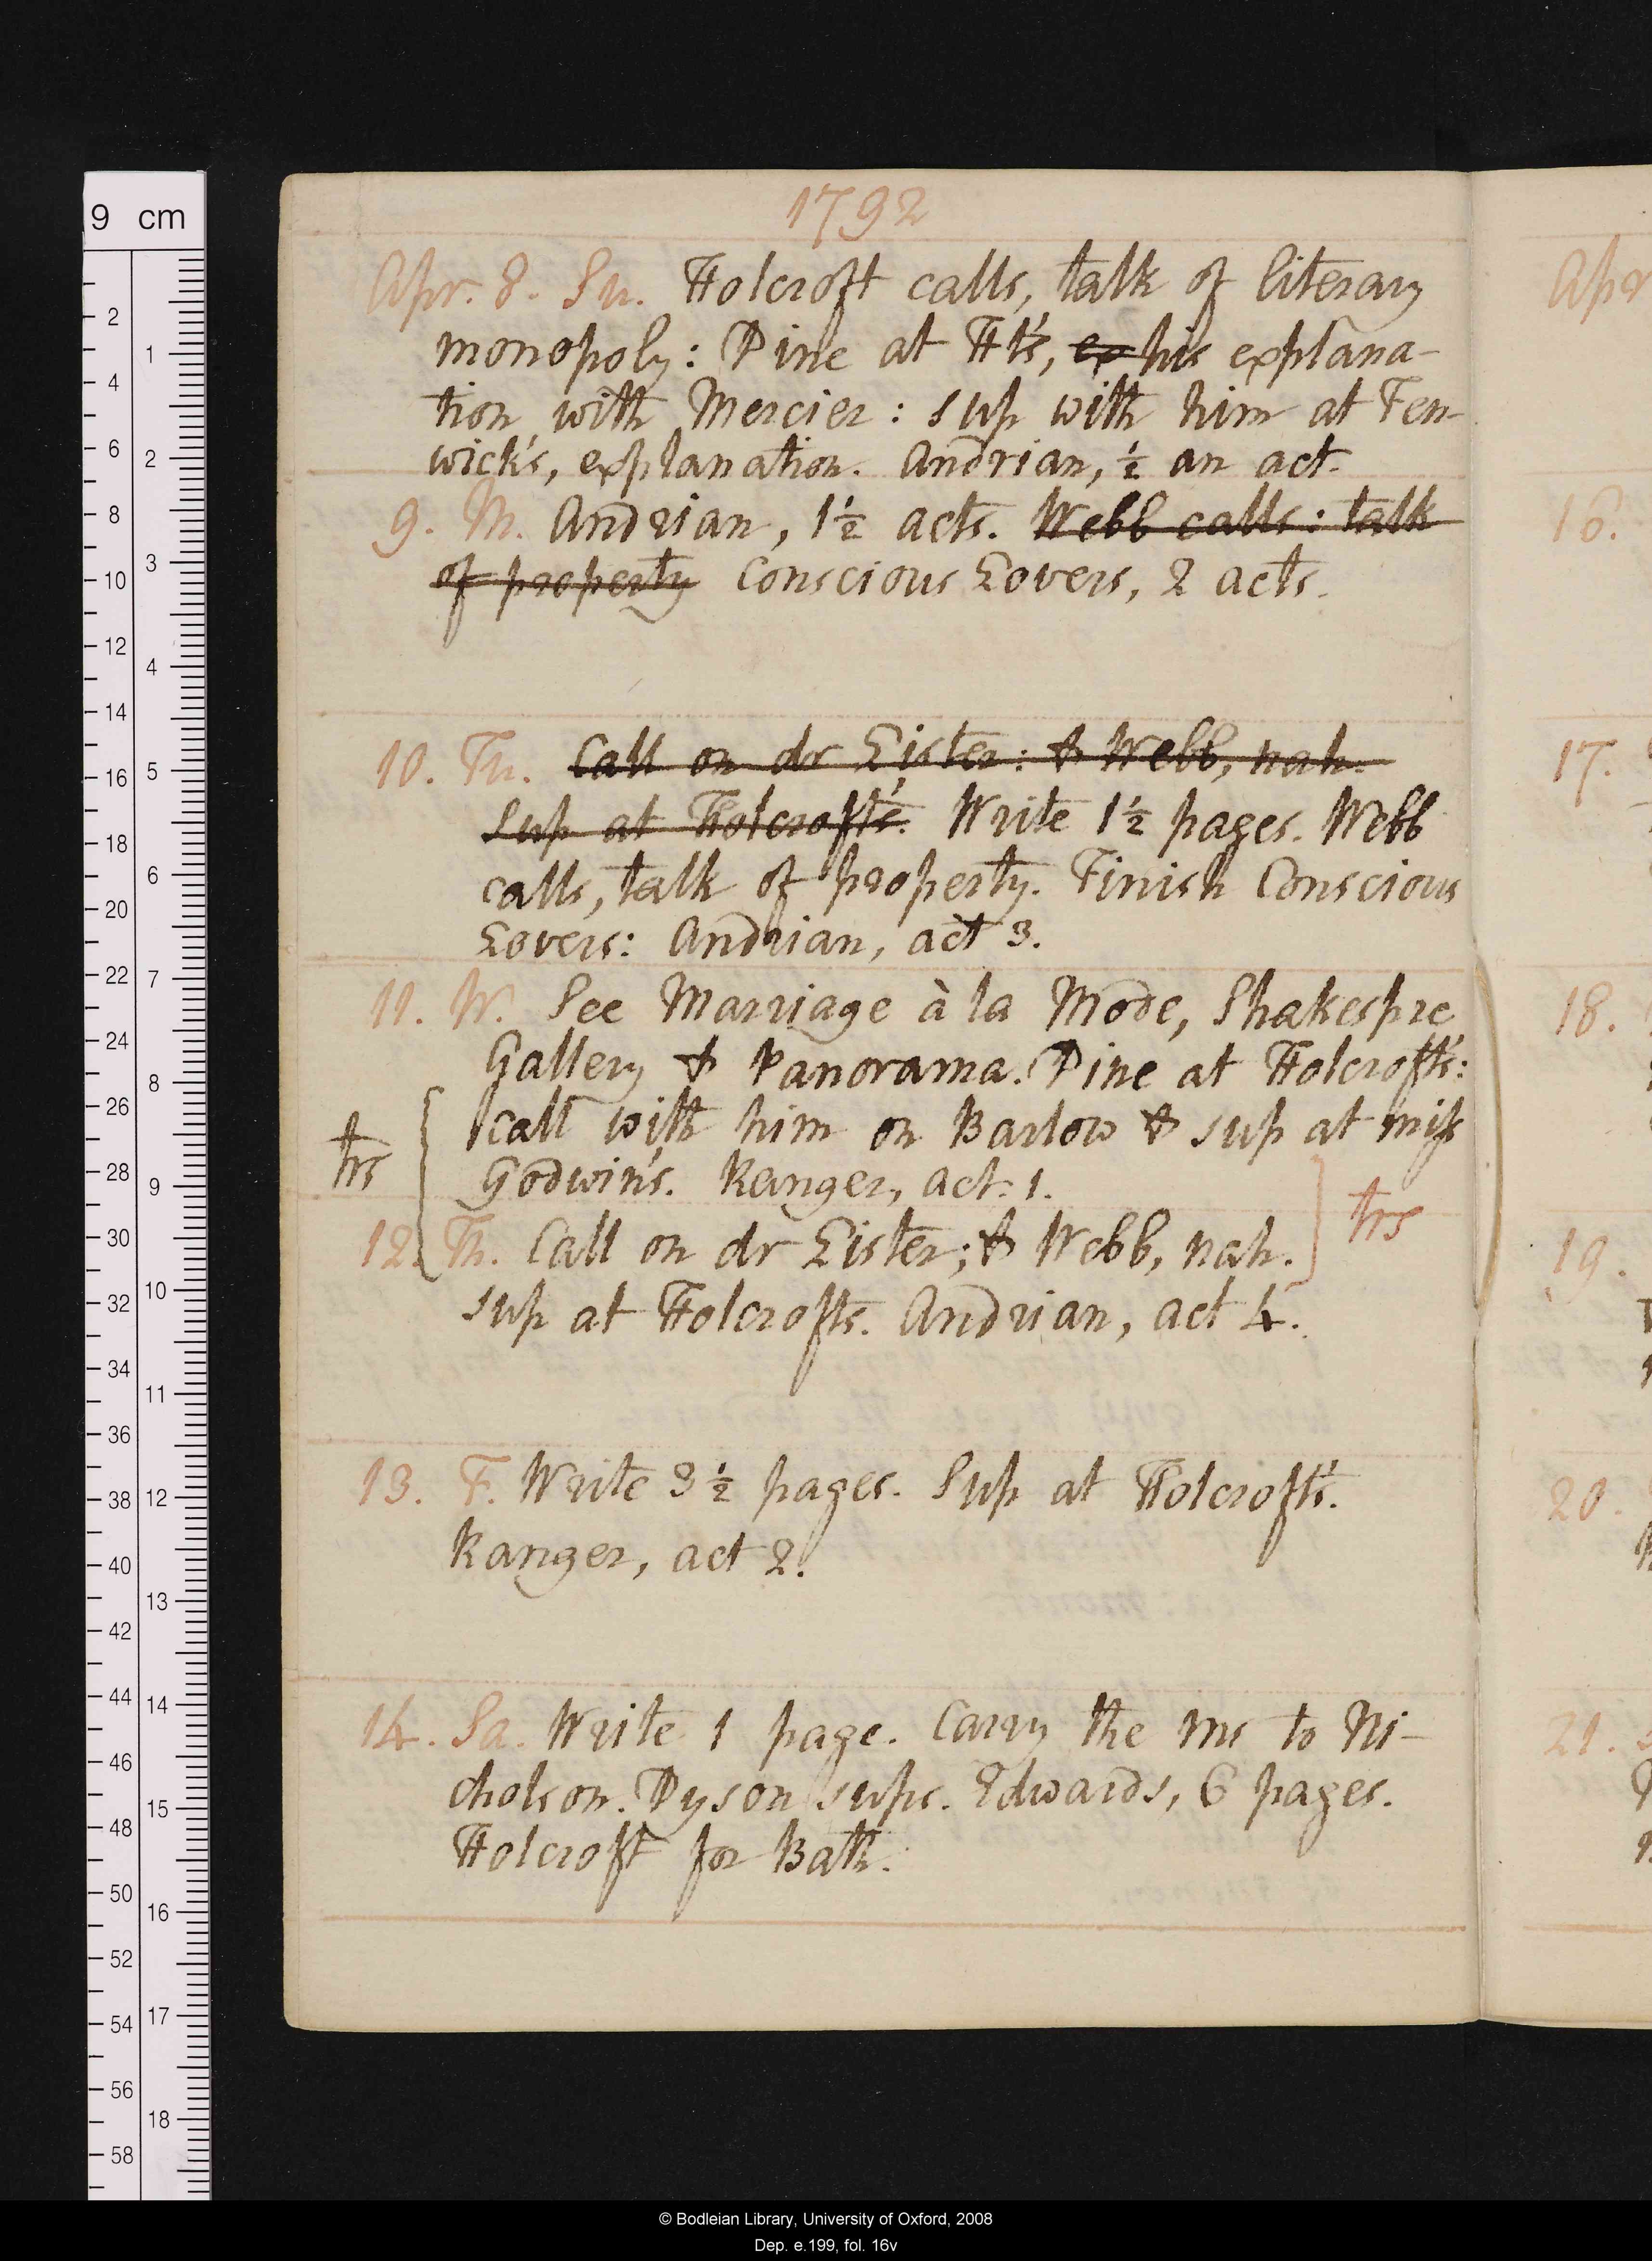 1792
Apr. 8. Su. Holcroft calls, talk of literary
monopoly: Dine at Ht's, ex his explana-
tion with Mercier: sup with him at Fen-
wick's, explanation. Andrian, ½ an act.
9. M. Andrian, 1½ acts. Webb calls: talk
of property Conscious Lovers, 2 acts.
10. Tu. Call on dr Lister: & Webb, nah.
Sup at Holcroft's. Write 1½ pages. Webb
calls, talk of property. Finish Conscious
Lovers: Andrian, act 3.
11. W. See Marriage à la Mode, Shakespre
Gallery & Panorama. Dine at Holcroft's:
call with him on Barlow & sup at miss
Godwin's. Ranger, act. 1.
trs
trs
12. Th. Call on dr Lister; & Webb, nah.
sup at Holcrofts. Andrian, act 4.
13. F. Write 3½ pages. Sup at Holcroft's.
Ranger, act 2.
14. Sa. Write 1 page. Carry the ms to Ni-
cholson. Dyson sups. Edwards, 6 pages.
Holcroft for Bath.
Apr
16.
17.
18.
19.
20.
21.
9 cm
2
4
6
8
10
12
14
16
18
20
22
24
26
28
30
32
34
36
38
40
42
44
46
48
50
52
54
56
58
1
2
3
4
5
6
7
8
9
10
11
12
13
14
15
16
17
18
© Bodleian Library, University of Oxford, 2008
Dep. e.199, fol. 16v